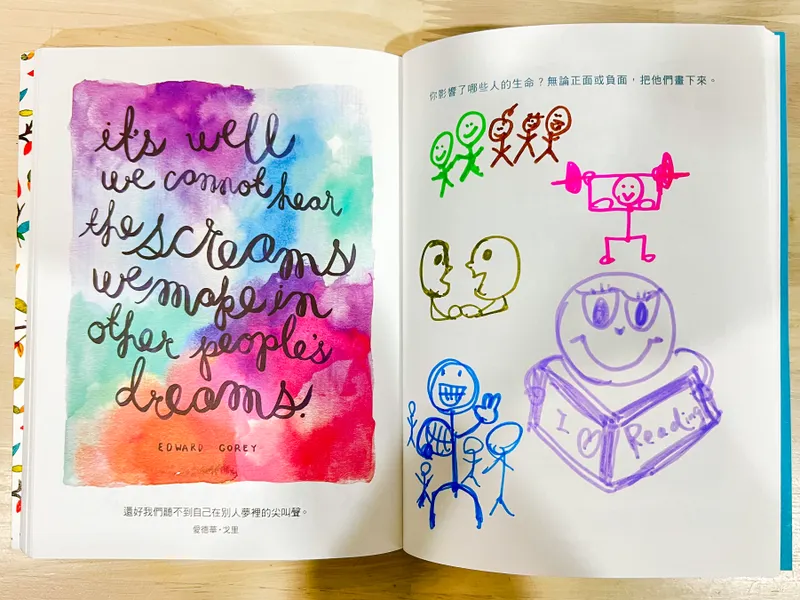 it's well
we cannot hear
the screams
we make in
other people's
dreams.
EDWARD GOREY
還好我們聽不到自己在別人夢裡的尖叫聲。
愛德華·戈里
你影響了哪些人的生命？無論正面或負面，把他們畫下來。
I
Reading